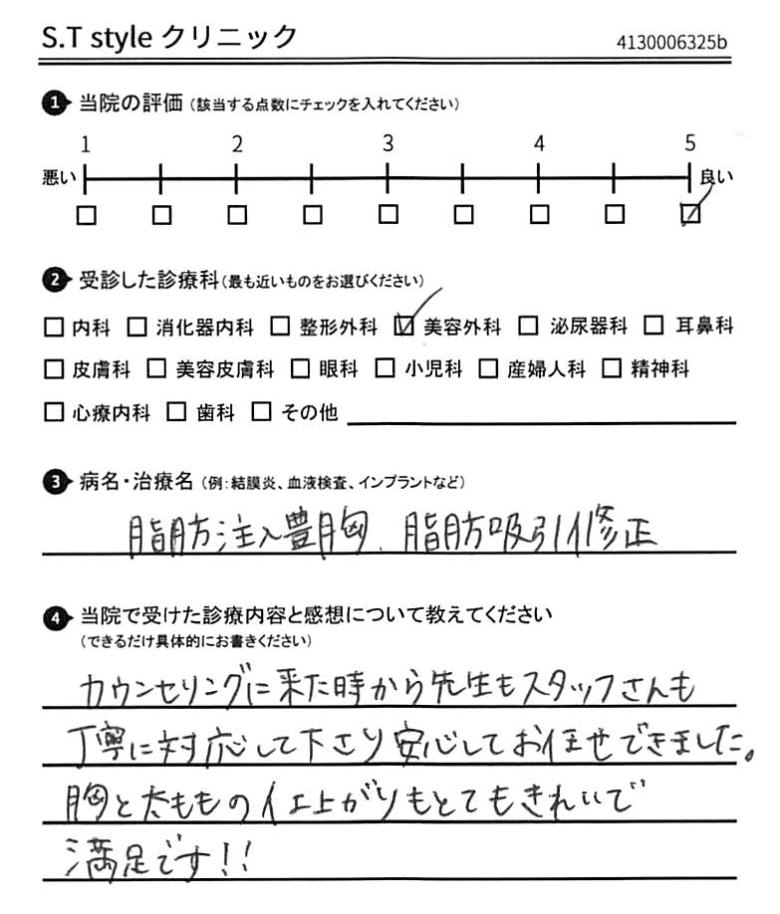 S.T style クリニック
4130006325b
1 当院の評価(該当する点数にチェックを入れてください)
1 2 3 4 5
悪い 良い
2 受診した診療科(最も近いものをお選びください)
内科 消化器内科 整形外科 美容外科 泌尿器科 耳鼻科
皮膚科 美容皮膚科 眼科 小児科 産婦人科 精神科
心療内科 歯科 その他
3 病名・治療名(例:結膜炎、血液検査、インプラントなど)
脂肪注入豊胸、脂肪吸引修正
4 当院で受けた診療内容と感想について教えてください
(できるだけ具体的にお書きください)
カウンセリングに来た時から先生もスタッフさんも
丁寧に対応して下さり安心してお任せできました。
胸と太ももの仕上がりもとてもきれいで
満足です!!